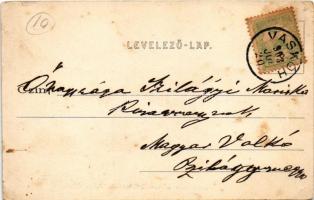 10
LEVELEZŐ-LAP.
VASKOH
Őnagysága Szilágyi Mariska
Kisasszonynak
Magyar Valkó
Szilágymegye